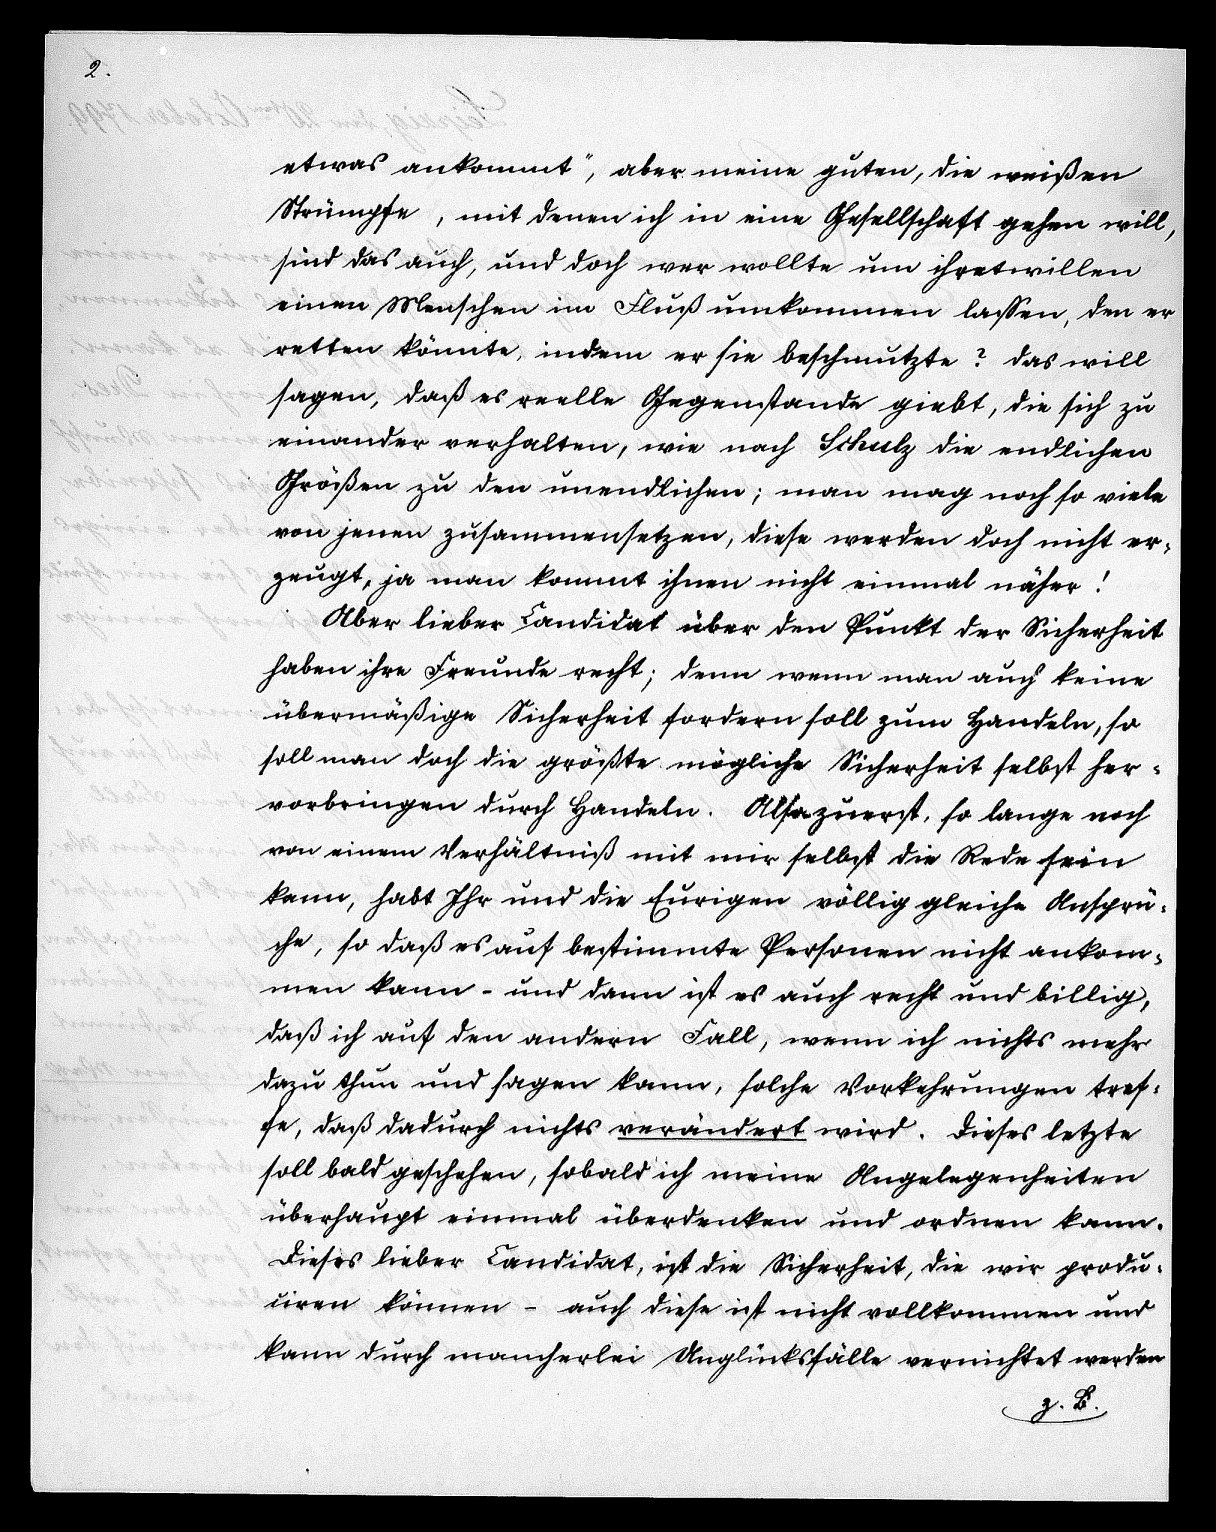 2.
etwas ankommt", aber meine guten, die weißen
Strümpfe, mit denen ich in eine Gesellschaft gehen will,
sind das auch, und doch wer wollte um ihretwillen
einen Menschen im Fluß umkommen lassen, den er
retten könnte, indem er sie beschmutzte? das will
sagen, daß es reelle Gegenstande giebt, die sich zu
einander verhalten, wie nach Schulz die endlichen
Größen zu den unendlichen; man mag noch so viele
von jenen zusammensetzen, diese werden doch nicht er-
zeugt, ja man kommt ihnen nicht einmal näher!
Aber lieber Candidat über den Punkt der Sicherheit
haben ihre Freunde recht; denn wenn man auch keine
übermäßige Sicherheit fordern soll zum Handeln, so
soll man doch die größte mögliche Sicherheit selbst her-
vorbringen durch Handeln. Also zuerst, so lange noch
von einem Verhältniß mit mir selbst die Rede sein
kann, habt Ihr und die Eurigen völlig gleiche Ansprü-
che, so daß es auf bestimmte Personen nicht ankom-
men kann - und dann ist es auch recht und billig,
daß ich auf den andern Fall, wenn ich nichts mehr
dazu thun und sagen kann, solche Vorkehrungen tref-
fe, daß dadurch nichts verändert wird. Dieses letzte
soll bald geschehen, sobald ich meine Angelegenheiten
überhaupt einmal überdenken und ordnen kann.
Dieses lieber Candidat, ist die Sicherheit, die wir produ-
ciren können - auch diese ist nicht vollkommen und
kann durch mancherlei Unglücksfälle vernichtet werden
z. B.